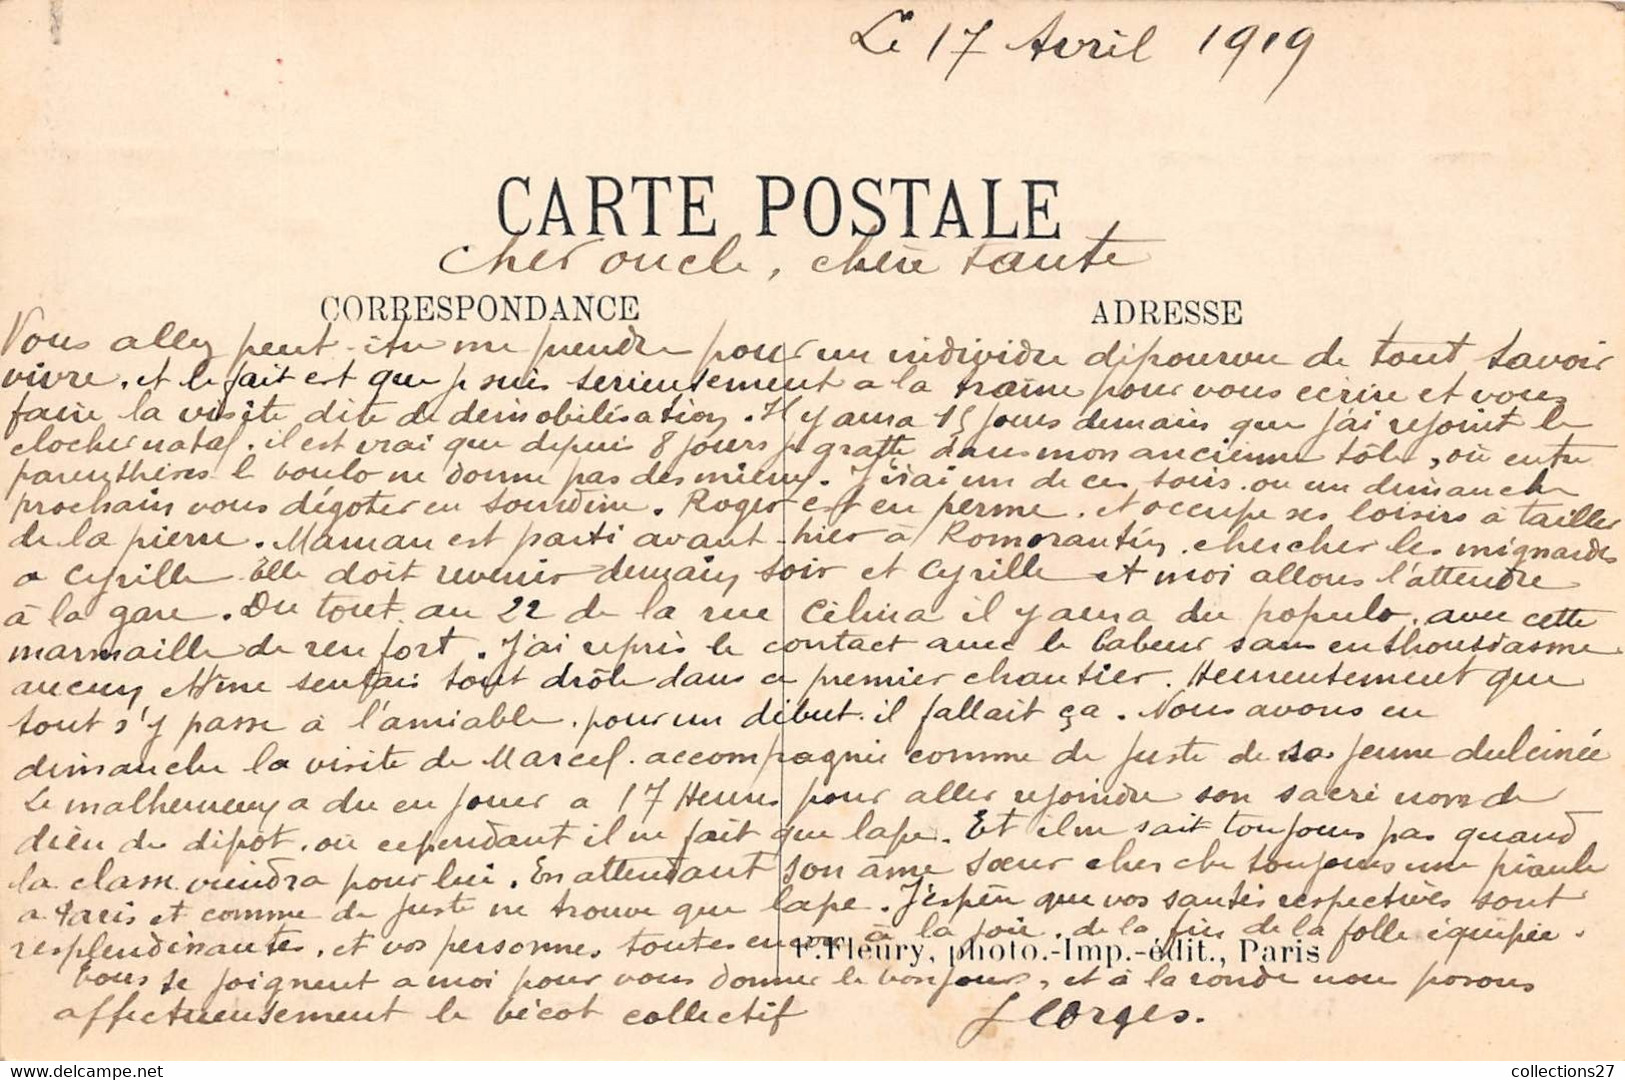 Le 17 Avril 1919
CARTE POSTALE
Cher oncle, chère tante
CORRESPONDANCE
ADRESSE
Vous allez peut-être me prendre pour un individu dépourvu de tout savoir
vivre, et le fait est que je suis serieusement a la traine pour vous écrire et vous
faire la visite dite de démobilisation. Il y aura 15 jours demain que j'ai rejoint le
clocher natal. il est vrai que depuis 8 jours je gratte dans mon ancienne tôle, où entre
parenthèses le boulo ne donne pas des mieux. J'irai un de ces soirs ou un dimanche
prochain vous dégoter en sourdine. Roger est en perme, et occupe ses loisirs à tailler
de la pierre. Maman est parti avant-hier à Romorantin chercher les mignardes
a Cyrille Elle doit revenir demain soir et Cyrille et moi allons l'attendre
à la gare. Du tout au 22 de la rue Célina il y aura du populo, avec cette
marmaille de renfort. J'ai repris le contact avec le labeur sans enthousiasme
aucun et me sentais tout drôle dans ce premier chantier. Heureusement que
tout s'y passe à l'amiable, pour un début il fallait ça. Nous avons eu
dimanche la visite de Marcel accompagnée comme de juste de sa jeune dulcinée
Le malheureux a du en jouer a 17 Heures pour aller rejoindre son sacré nom de
dieu de dépôt, où cependant il ne fait que lape. Et il ne sait toujours pas quand
la classe viendra pour lui. En attendant son âme sœur cherche toujours une piaule
a Paris et comme de juste ne trouve que lape. J'espère que vos santés respectives sont
resplendissantes, et vos personnes toutes encore à la joie, de la fin de la folle équipée.
F. Fleury, photo.-Imp.-édit., Paris
Tous se joignent a moi pour vous donner le bonjour, et à la ronde nous posons
affectueusement le bécot collectif Georges.
collections27